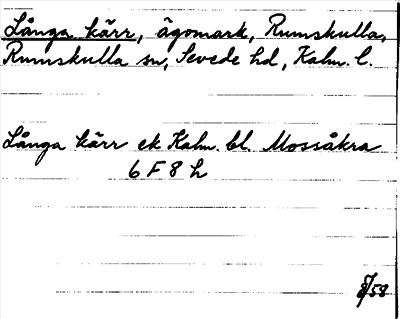 Långa kärr, ägomark, Rumskulla,
Rumskulla sn, Sevede hd, Kalm. l.
Långa kärr ek Kalm. bl. Mossåkra
6 F 8 h
/58